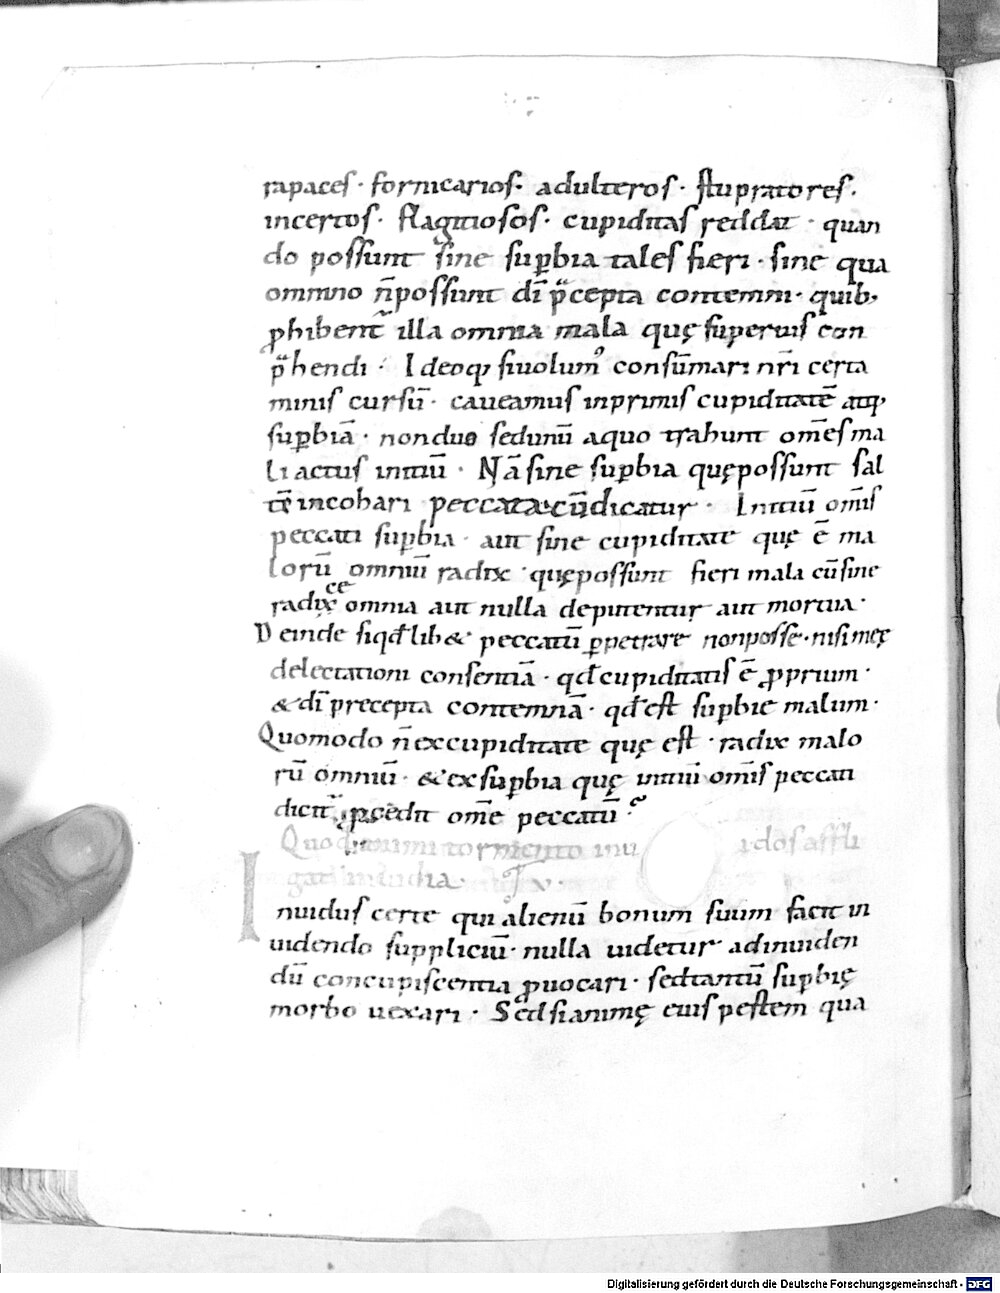 rapaces · fornicarios · adulteros · stupratores ·
incertos · flagitiosos · cupiditas reddat · quan
do possunt sine supbia tales fieri · sine qua
omnino n̄ possunt dī p̄cepta contemni · quib;
phibent̃ illa omnia mala quę superuis con
p̄hendi · Ideoq; si uolum᾽ consūmari nr̄i certa
minis cursū · caueamus inprimis cupiditatē atq;
supbiā · non duo sed unū a quo trahunt om̄es ma
li actus initiū · Nā sine supbia quę possunt sal
tē incohari peccata & cū dicatur · Initiū om̄is
peccati supbia · aut sine cupiditate quę ē ma
lorū omniū radix · quę possunt fieri mala cū sine
radice omnia aut nulla deputentur aut mortua ·
Deinde si qđ lib& peccatū ppetrare non posse · nisi mex
delectationi consentiā · qđ cupiditatis ē pprium ·
& dī precepta contemnā · qđ est supbie malum ·
Quomodo n̄ ex cupiditate quę est · radix malo
rū omniū · & ex supbia quę initiū om̄is peccati
dicit̃ pcedit om̄e peccatū ?
Quod animi tormento inuidos affli
gat inuidia · xv ·
Inuidus certe qui alienū bonum suum facit in
uidendo suppliciū · nulla uidetur ad inuiden
dū concupiscentia puocari · sed tantū supbię
morbo uexari · Sed si animę eius pestem qua
Digitalisierung gefördert durch die Deutsche Forschungsgemeinschaft - DFG